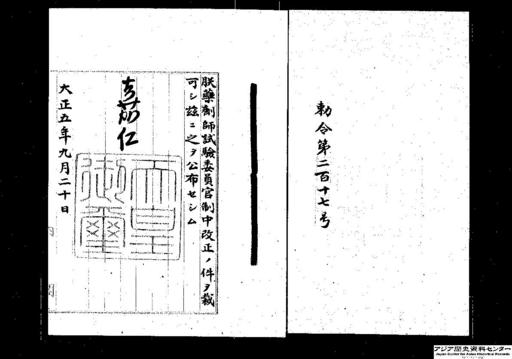 勅令第二百十七号
朕藥剤師試驗委員官制中改正ノ件ヲ裁
可シ茲ニ之ヲ公布セシム
嘉仁
天皇
御璽
大正五年九月二十日
アジア歴史資料センター
Japan Center for Asian Historical Records